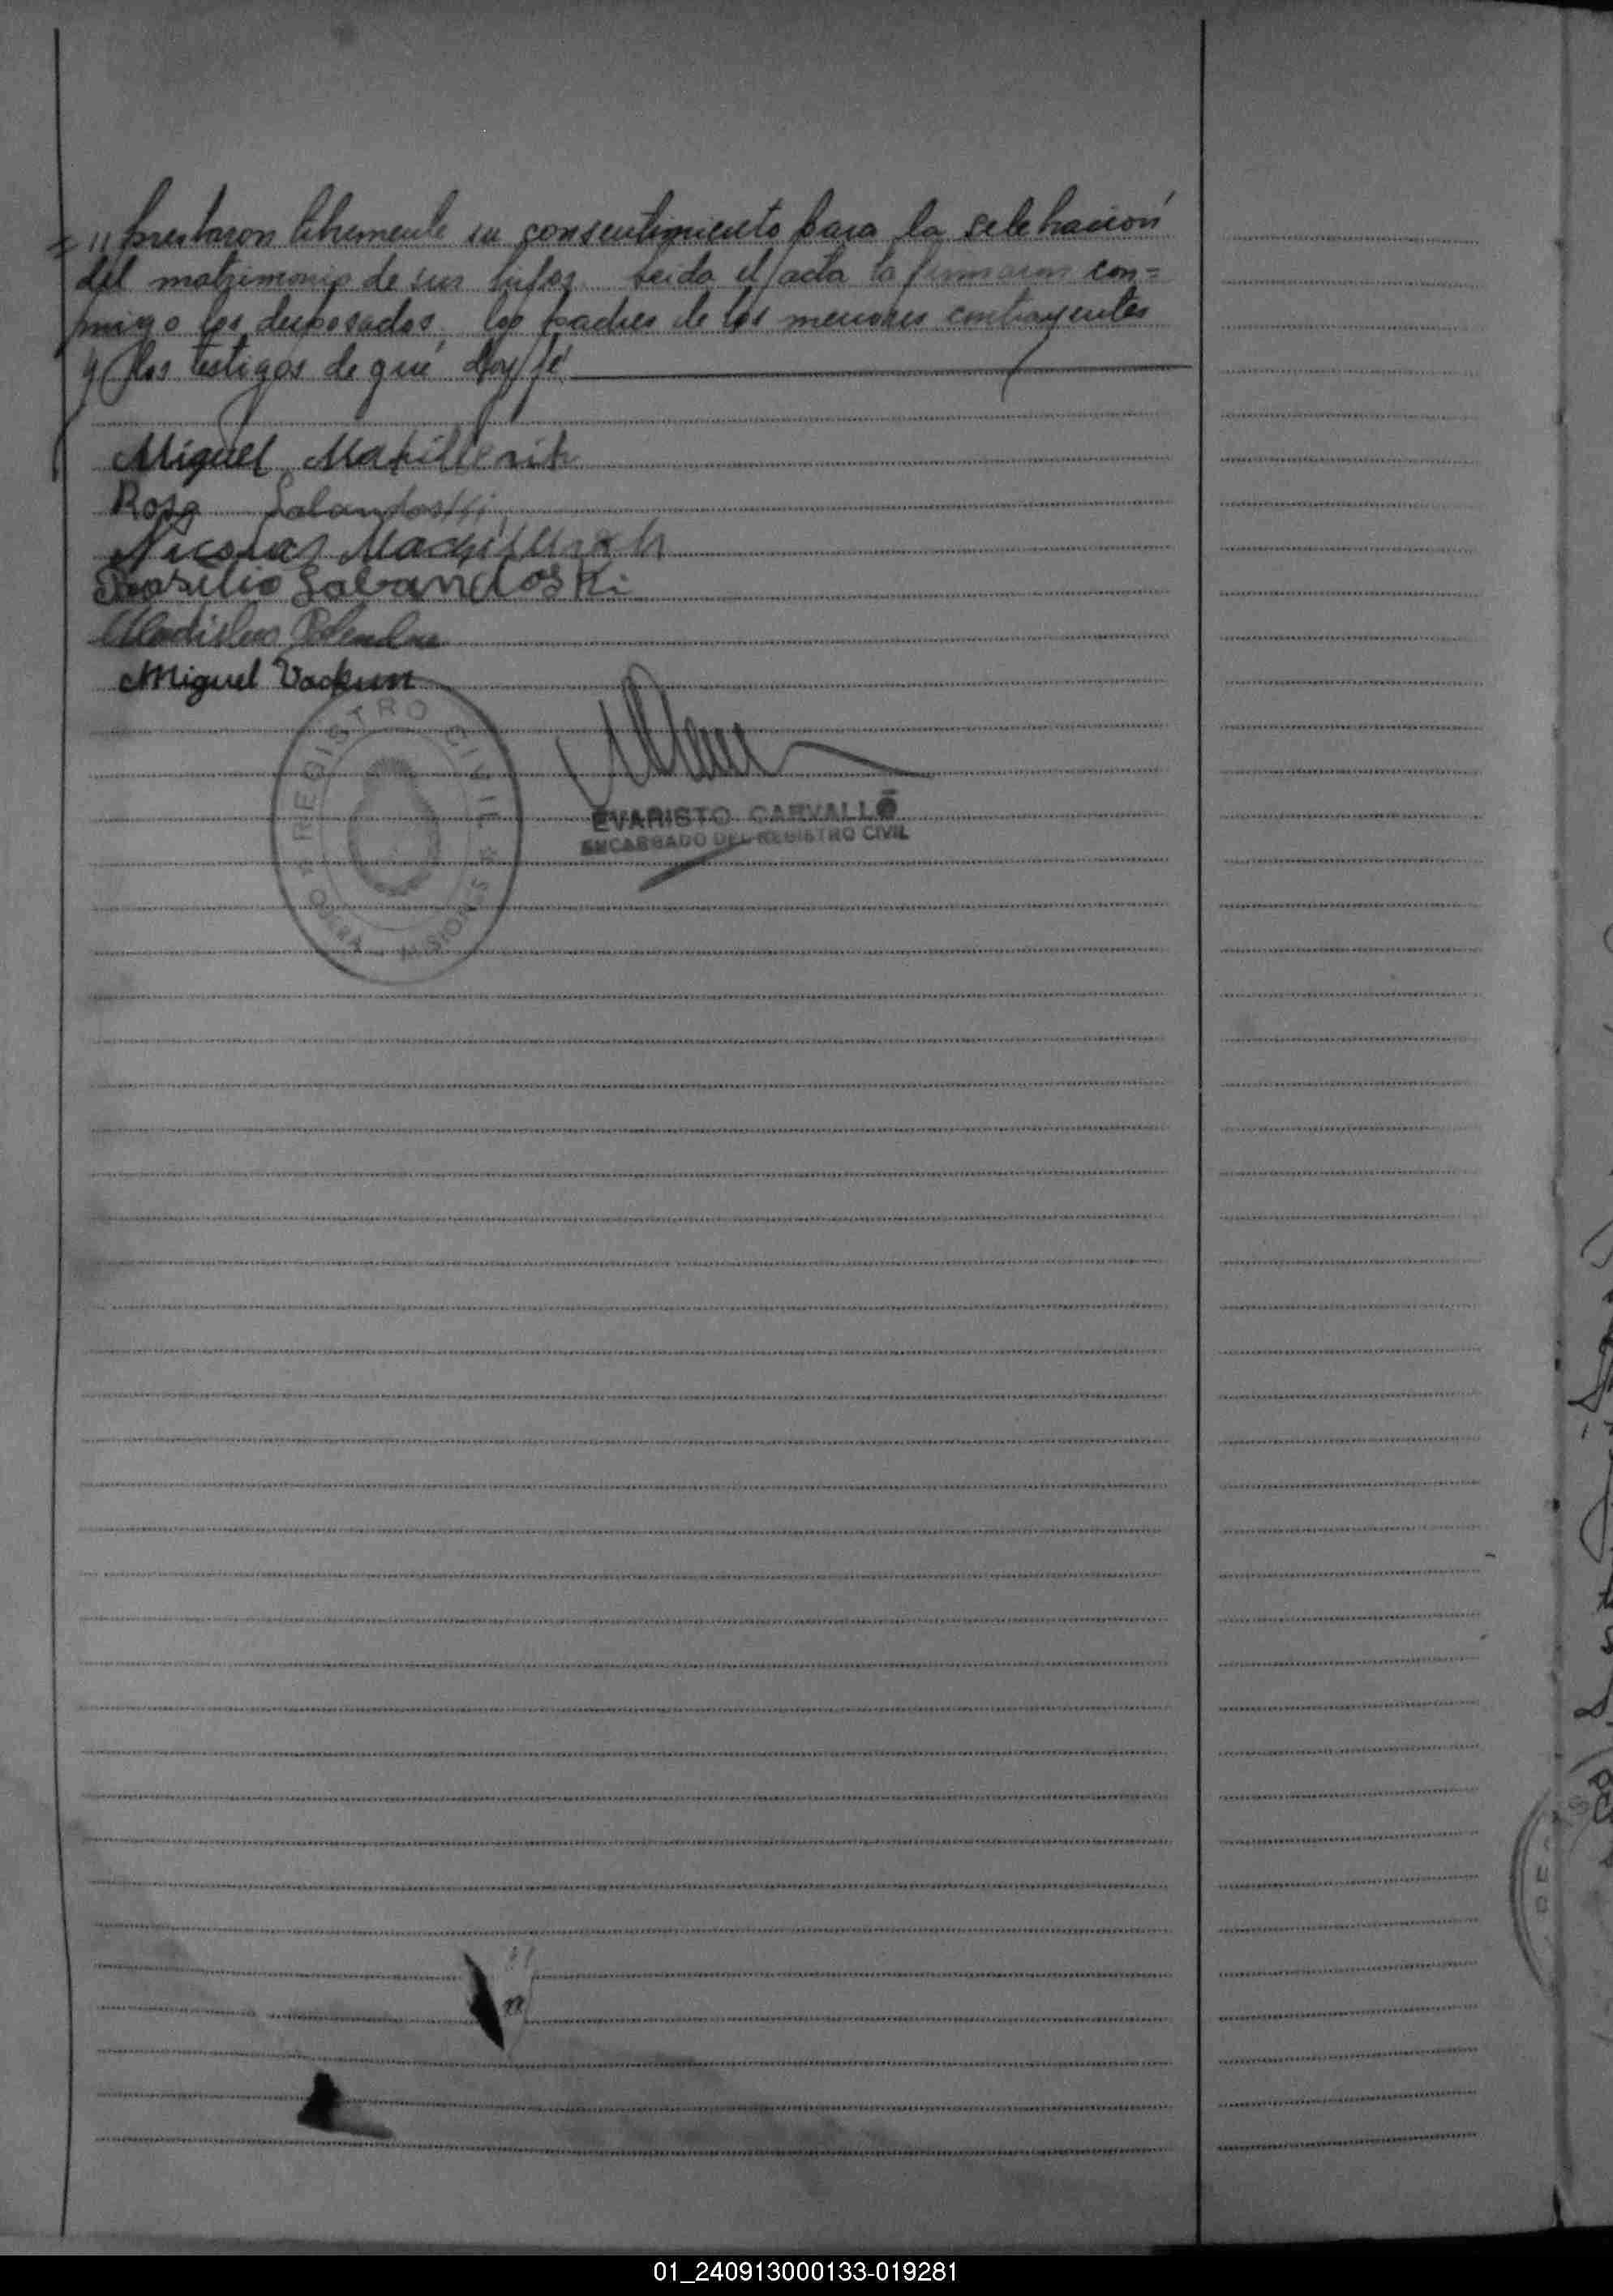 = // prestaron libremente su consentimiento para la celebración
del matrimonio de sus hijos. Leida el acta la firmaron con=
migo los desposados, los padres de los menores contrayentes
y los testigos de que doy fé
Miguel
Rosa
Nicolas
Basilio Sabandoski
Miguel
REGISTRO CIVIL
MISIONES
EVARISTO CARVALLO
ENCARGADO DEL REGISTRO CIVIL
01_240913000133-019281